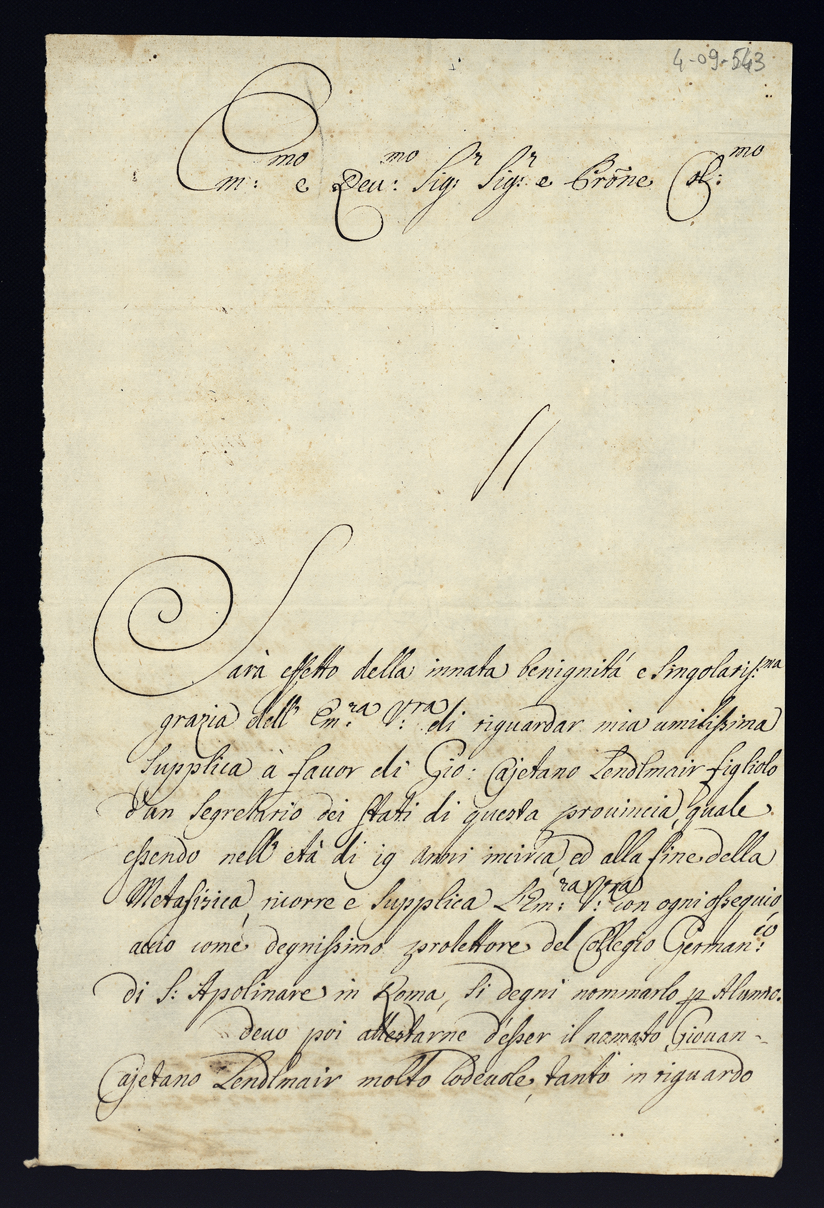 4-09-543
Em:mo e Reu:mo Sig:r Sig:r e Prõne Col:mo
Sarà effetto della innata benignitá e singolariss:ma
grazia dell' Em:ra V:ra di riguardar mia umilissima
supplica à fauor di Gio: Cajetano Lendlmair figliolo
d'un Segretario dei Stati di questa prouincia, quale
essendo nell' età di 19 anni incirca, ed alla fine della
Metafisica, ricorre e supplica L'Em:ra V:ra con ogni ossequio
acio come degnissimo protettore del Collegio German:co
di S: Apolinare in Roma, si degni nommarlo p Alunno.
deuo poi attestarne d'esser il nomato Giouan-
Cajetano Lendlmair molto lodeuole, tanto in riguardo